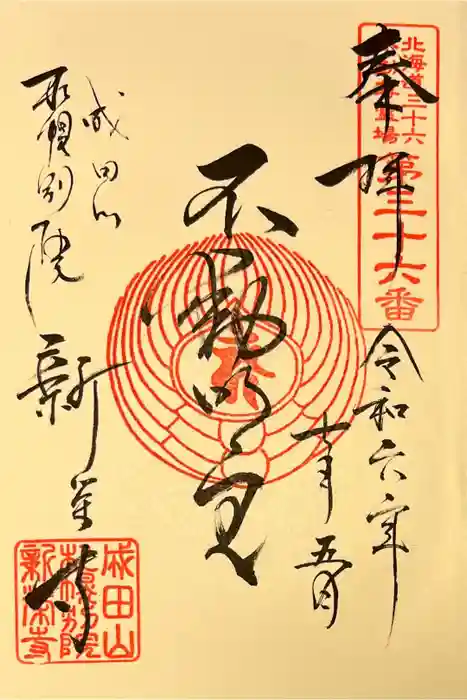 北海道三十六
不動尊霊場
第三十六番
奉拝
令和六年
十月五日
不動明王
成田山
札幌別院
新栄寺
成田山
札幌別院
新榮寺